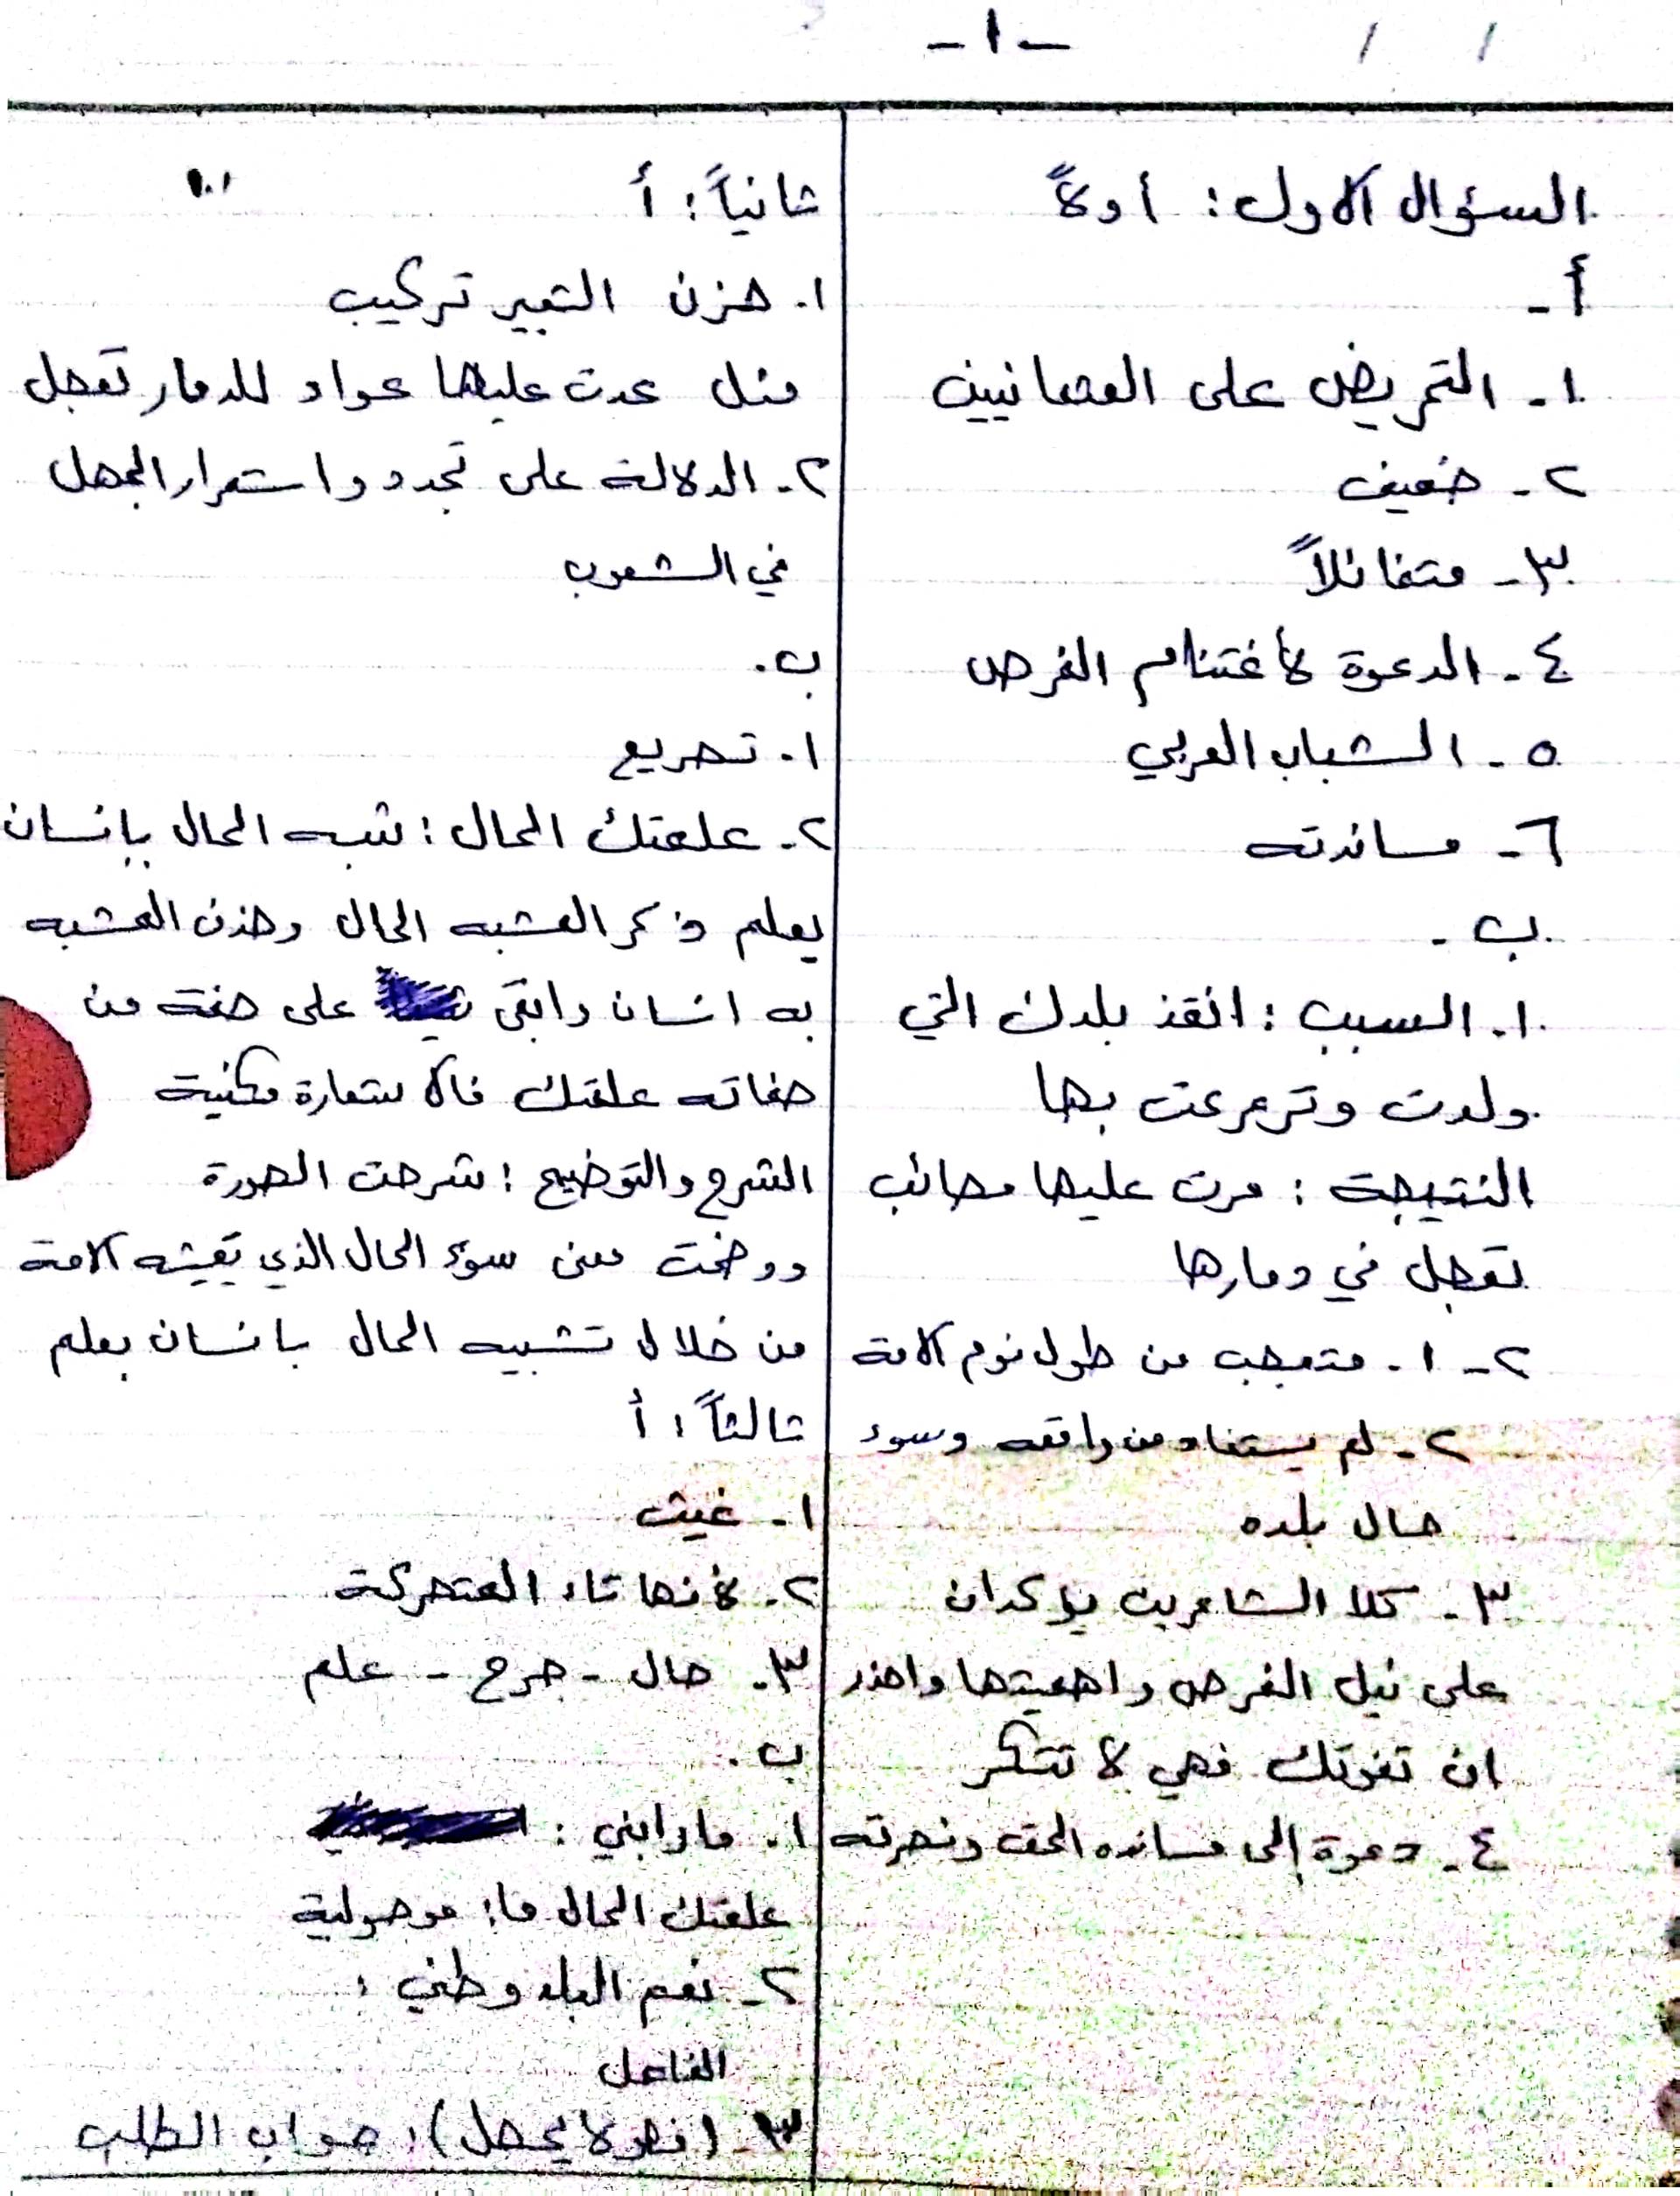 -١-
السؤال الاول: اولاً
أ-
١- التحريض على العثمانيين
٢- ضعيف
٣- متفائلاً
٤- الدعوة لأغتنام الفرص
٥- الشباب العربي
٦- مساندته
ب-
١. السبب: انقذ بلدك التي
ولدت وترعرعت بها
النتيجة: مرت عليها مصائب
تعجل في دمارها
٢- ١. متعجب من طول نوم الامة
٢- لم يستفاد من واقعه وسوء
حال بلده
٣- كلا الشاعرين يؤكدان
على نيل الفرص واهميتها واحذر
ان تفوتك فهي لا تتكر
٤- دعوة إلى مسانده الحق ونصرته
ثانياً: أ
١. حزن التعبير تركيب
مثل عدت عليها عواد للدمار تعجل
٢- الدلالة على تجدد واستمرار الجهل
في الشعوب
ب.
١. تصريع
٢- علمتك الحال: شبه الحال بإنسان
يعلم ذكر المشبه الحال وحذف المشبه
به انسان وابقى على صفة من
صفاته علمتك فالاستعارة مكنية
الشرح والتوضيح: شرحت الصورة
ووضحت معنى سوء الحال الذي تعيشه الامة
من خلال تشبيه الحال بانسان يعلم
ثالثاً: أ
١- غيث
٢- لأنها تاء المتحركة
٣- حال - جرح - علم
ب.
١. ما رابني:
علمتك الحال ما: موصولية
٢- نعم البلد وطني:
الفاعل
٣- (فهو لا يحصل): جواب الطلب